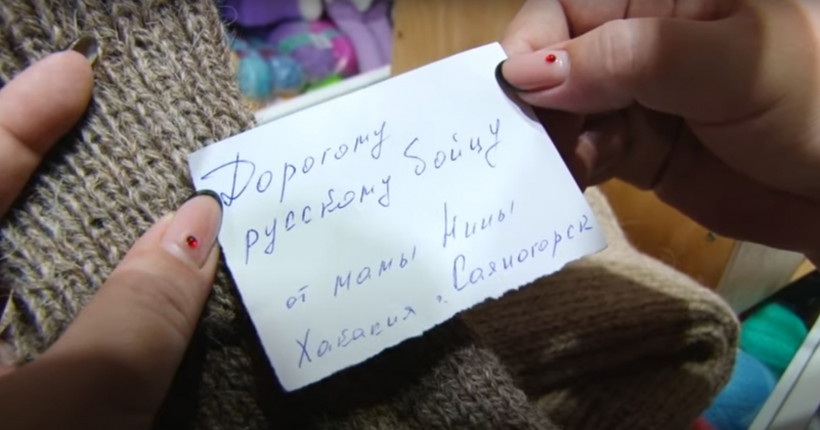 Дорогому
русскому бойцу
от мамы Нины
Хакасия, Саяногорск